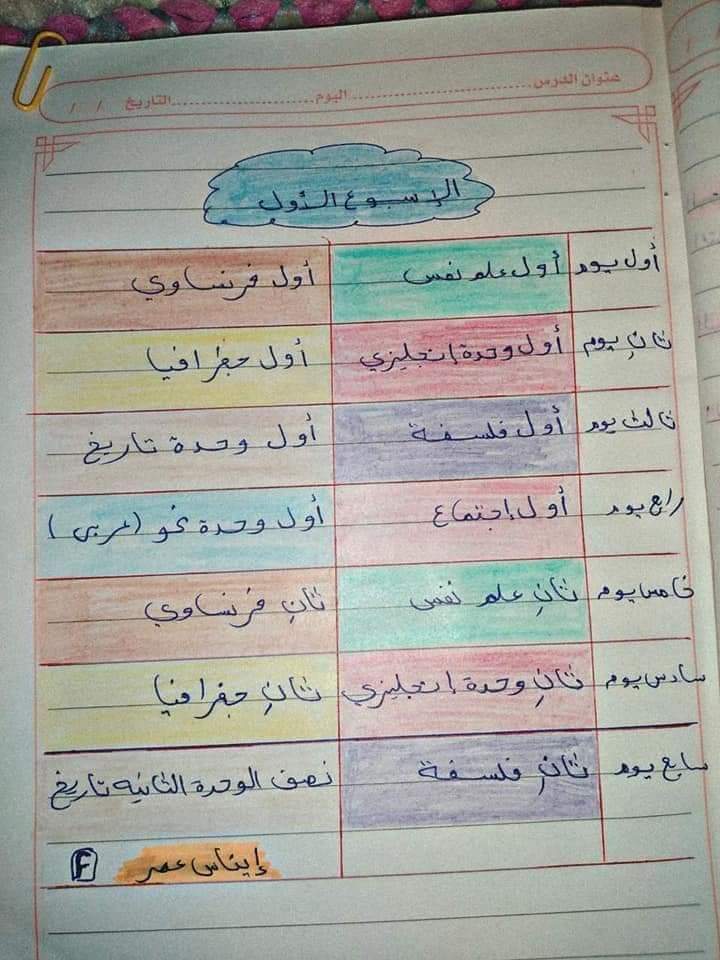 عنوان الدرس .................... اليوم .................... التاريخ / /
الإسبوع الأول
أول يوم أول علم نفس أول فرنساوي
ثانِ يوم أول وحدة إنجليزي أول جغرافيا
ثالث يوم أول فلسفة أول وحدة تاريخ
رابع يوم أول إجتماع أول وحدة نحو (عربى)
خامس يوم ثانِ علم نفس ثانِ فرنساوي
سادس يوم ثانِ وحدة إنجليزي ثانِ جغرافيا
سابع يوم ثانِ فلسفة نصف الوحدة الثانيه تاريخ
إيناس عمر F